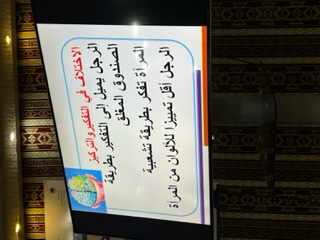 الاختلاف في التفكير والتركيز
الرجل يميل إلى التفكير بطريقة
الصندوق المغلق
المرأة تفكر بطريقة تشعبية
الرجل أقل تمييزا للألوان من المرأة